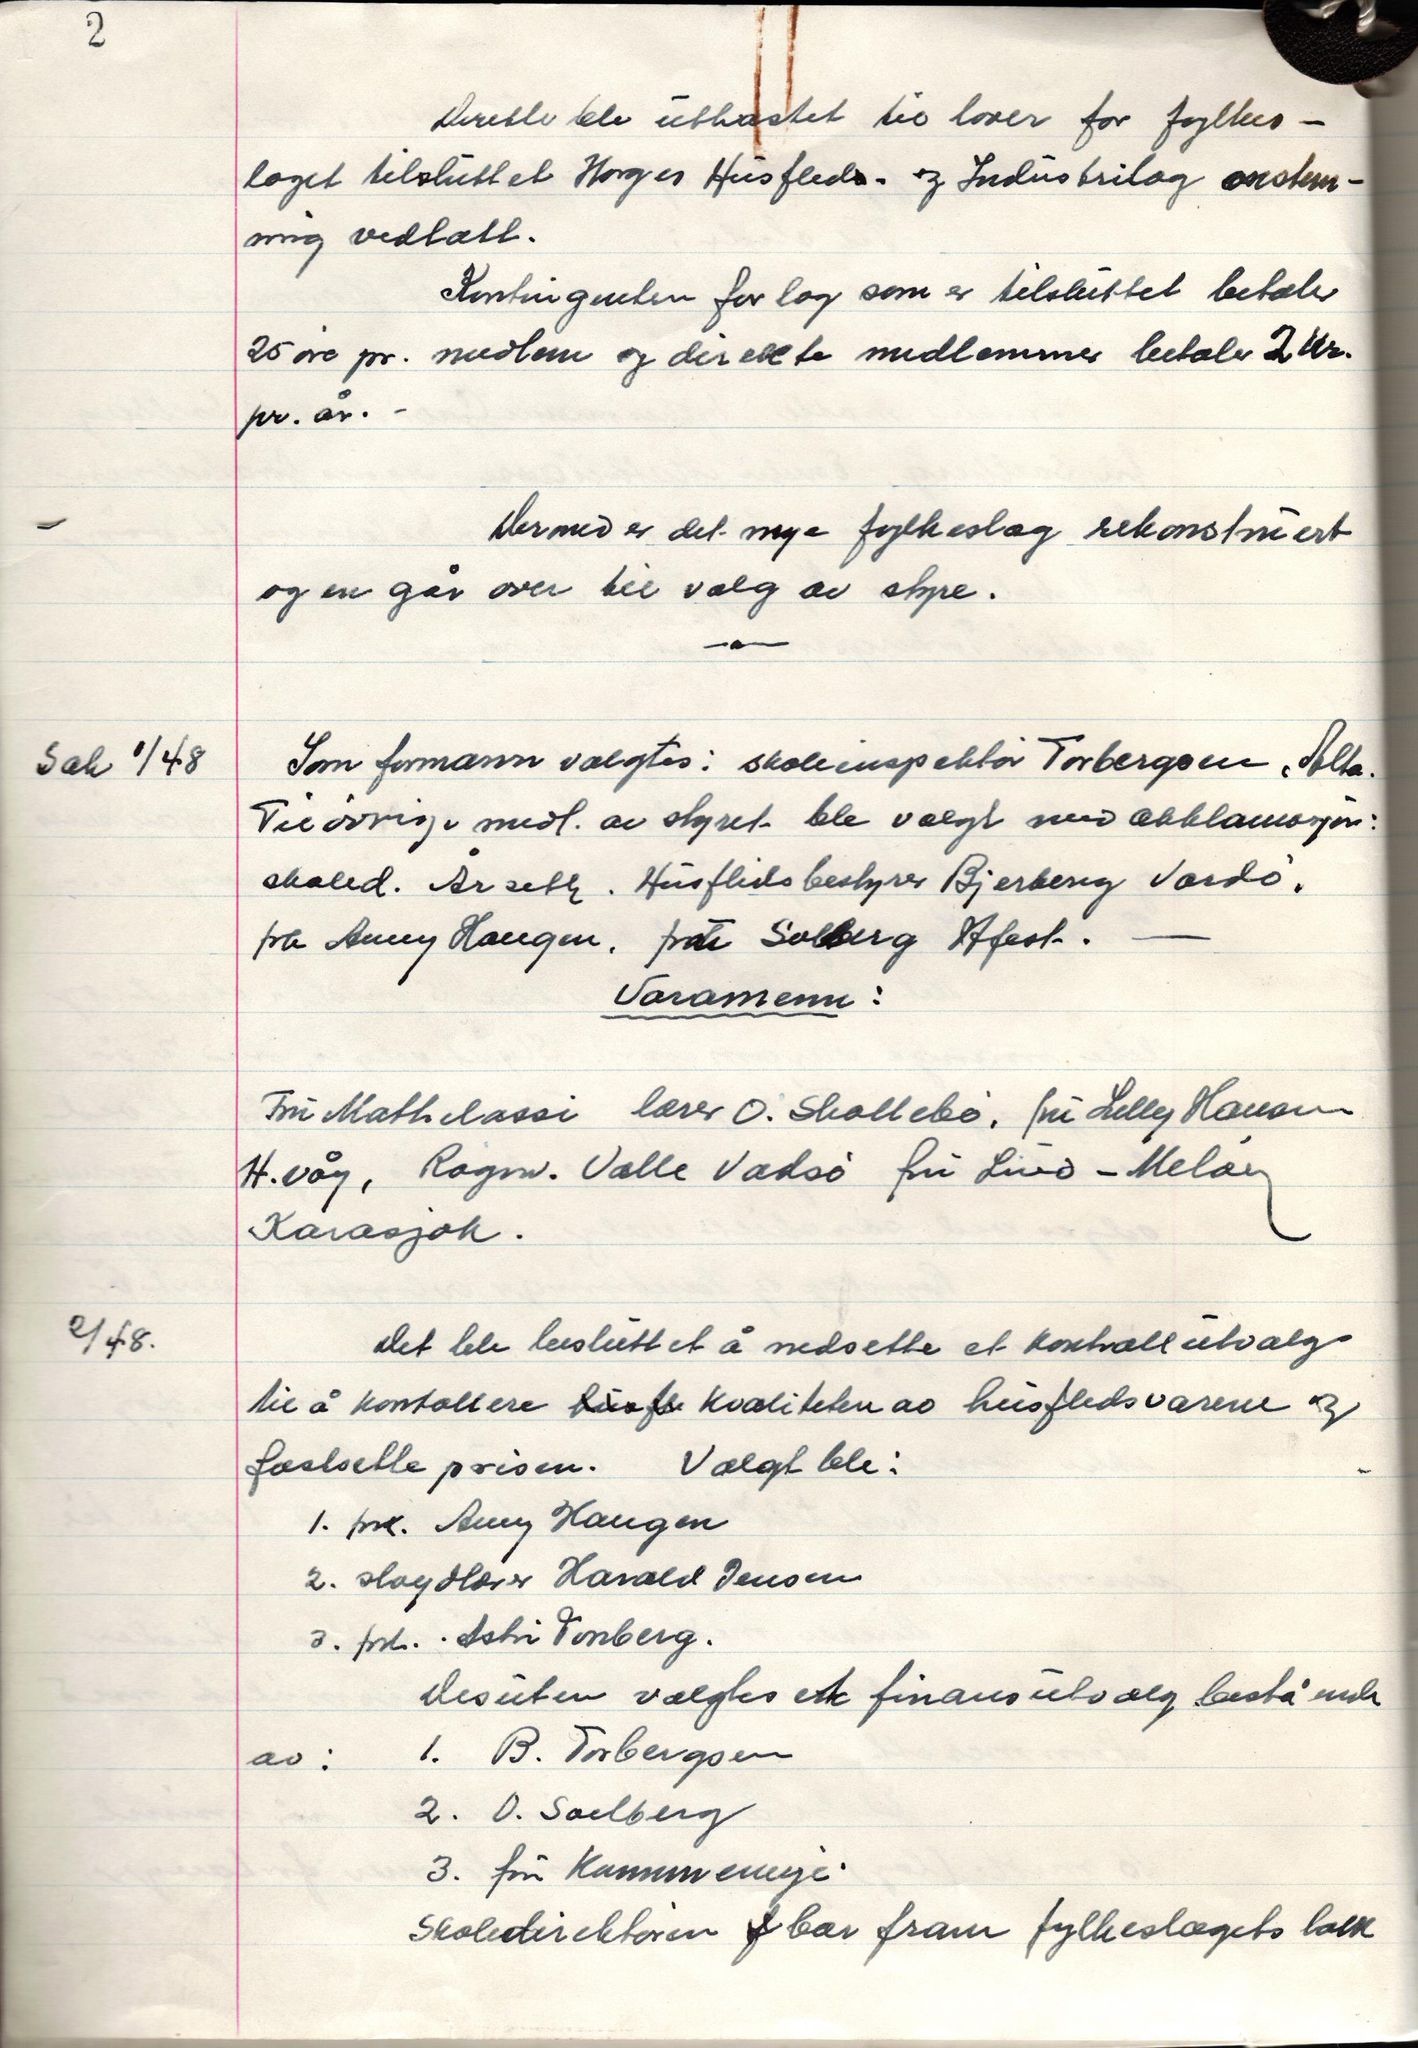 2
Derette ble utkastet til lover for fylkes-
laget tilsluttet Norges Husflids- og Industrilag enstem-
mig vedtatt.
Kontingenten for lag som er tilsluttet betaler
25 øre pr. medlem og direkte medlemmer betaler 2 kr.
pr. år. -
Dermed er det nye fylkeslag rekonstruert
og en går over til valg av styre.
Sak 1/48 Som formann valgtes: skoleinspektør Torbergsen, Alta.
Til øvrige medl. av styret ble valgt med akklamasjon:
skoled. Årseth. Husflidsbestyrer Bjerberg Vardø,
frk Anny Haugen, fru Solberg Hfest. —
Varamenn:
Fru Mathelassi lærer O. Skollebø, fru Lilly Hansen
H.våg, Ragnv. Valle Vadsø fru Lund-Meløy
Karasjok.
2/48. Det ble besluttet å nedsette et kontrollutvalg
til å kontollere kvaliteten av husflidsvarene og
fastsette prisen. Valgt ble:
1. frk. Anny Haugen
2. sløydlærer Harald Jensen
3. frk. Astri Tonberg.
Desuten valgtes et finansutvalg bestående
av: 1. B. Torbergsen
2. O. Soelberg
3. fru
Skoledirektøren bar fram fylkeslagets takk